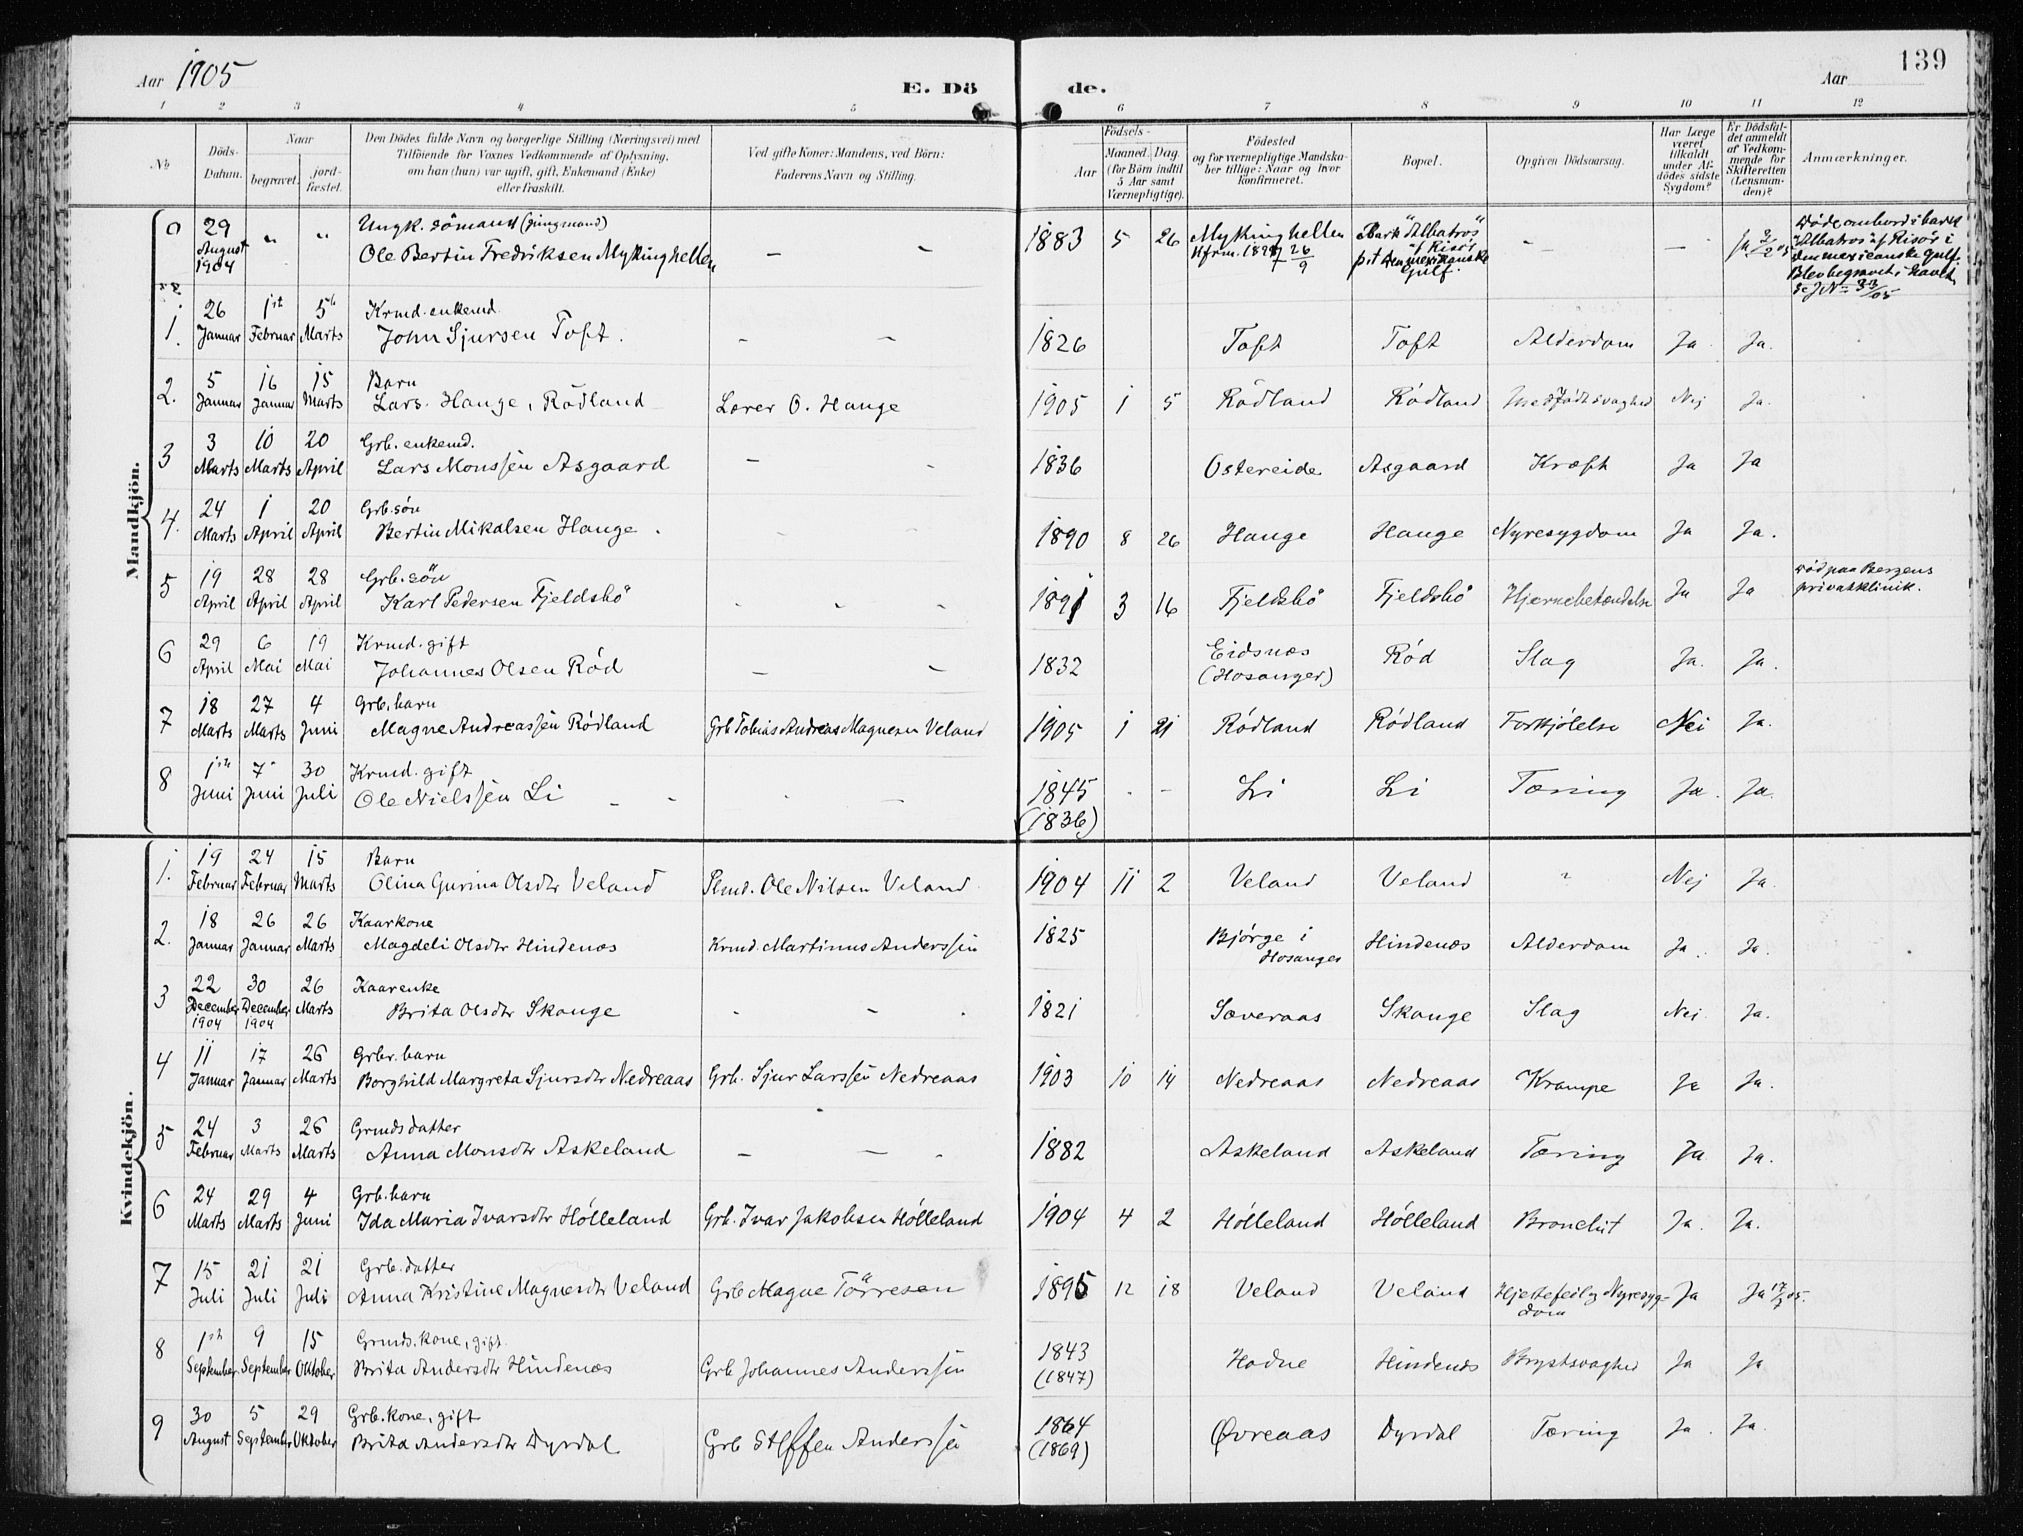 Aar 1905
E. Döde.
Aar
139
1 2 3 4 5 6 7 8 9 10 11 12
No
Döds-Datum.
Naar
begravet.
jord-fæstet.
Den Dödes fulde Navn og borgerlige Stilling (Næringsvei) med
Tilföiende for Voxnes Vedkommende af Oplysning,
om han (hun) var ugift, gift, Enkemand (Enke)
eller fraskilt.
Ved gifte Koner: Mandens, ved Börn:
Faderens Navn og Stilling.
Födsels-
Aar
Maaned. Dag.
(for Börn indtil
5 Aar samt
Værnepligtige).
Födested
og for værnepligtige Mandska-
ber tillige: Naar og hvor
konfirmeret.
Bopæl.
Opgiven Dödsaarsag.
Har Læge
været
tilkaldt
under Af-
dödes sidste
Sygdom?
Er Dödsfal-
det anmeldt
af Vedkom-
mende for
Skifteretten
(Lensman-
den)?
Anmærkninger.
Mandkjön.
0 29 August 1904 " " Ungk. sömand (jungmand)
Ole Bertin Fredriksen Mykinghellen — — 1883 5 26 Mykinghellen
Kfrm. 1898 26/9 Bark "Albatros" af Risör p.t. den mexikanske Gulf. — — Ja 3/2 05 Døde ombord i bark "Albatros" af Risör i den mexicanske gulf. Blev begravet i havet. Se J No 33/05
1. 26 Januar 1st Februar 5te Marts Krmd. enkemd.
John Sjursen Toft. — — 1826 Toft Toft Alderdom Ja. Ja.
2. 5 Januar 16 Januar 15 Marts Barn
Lars Hauge, Rödland Lærer O. Hauge 1905 1 5 Rödland Rödland Medfödt svaghed Nej Ja.
3 3 Marts 10 Marts 20 April Grb. enkemd.
Lars Monssen Asgaard — - 1836 Ostereide Asgaard Kræft Ja Ja
4. 24 Marts 1 April 20 April Grb. søn
Bertin Mikalsen Hauge. 1890 8 26 Hauge Hauge Nyresygdom Ja Ja.
5 19 April 28 April 28 April Grb. sön
Karl Pedersen Fjeldsbö - - - 1891 3 16 Fjeldsbö Fjeldsbö Hjernebetændelse Ja Ja Död paa Bergens privatklinik.
6 29 April 6 Mai 19 Mai Krmd. gift
Johannes Olsen Rød — — 1832 Eidsnæs
(Hosanger) Rød Slag Ja. Ja.
7 18 Marts 27 Marts 4 Juni Grb. barn
Magne Andreassen Rødland Grb Tobias Andreas Magnesen Veland 1905 1 21 Rødland Rødland Forkjølelse Nei Ja.
8 1st Juni 7 Juni 30 Juli Krmd. gift
Ole Nielssen Li - - - — 1845
(1836) - - Li Li Tæring Ja. Ja.
Kvindekjön.
1. 19 Februar 24 Februar 15 Marts Barn
Olina Gurina Olsdtr Veland Plmd. Ole Nilsen Veland 1904 11 2 Veland Veland " Nej Ja.
2. 18 Januar 26 Januar 26 Marts Kaarkone
Magdeli Olsdtr Hindenæs Krmd. Martinus Anderssen 1825 Bjørge i
Hosanger Hindenæs Alderdom Ja. Ja.
3 22 December 1904 30 December 1904 26 Marts Kaarenke
Brita Olsdtr Skauge - - . 1821 Sæveraas Skauge Slag Nei Ja.
4 11 Januar 17 Januar 26 Marts Grbr. barn
Borghild Margreta Sjursdtr Nedreaas Grb. Sjur Larssen Nedreaas 1903 10 14 Nedreaas Nedreaas Krampe Ja Ja.
5 24 Februar 3 Marts 26 Marts Grmds datter
Anna Monsdtr Askeland — — - 1882 Askeland Askeland Tæring Ja Ja.
6 24 Marts 29 Marts 4 Juni Grb. barn
Ida Maria Ivarsdtr Hölleland Grb. Ivar Jakobsen Hölleland 1904 4 2 Hölleland Hölleland Bronchit Ja. Ja.
7 15 Juli 21 Juli 21 Juli Grb. datter
Anna Kristine Magnesdtr Veland Grb Magne Törresen 1895 12 18 Veland Veland Hjertefeil og Nyresyg-
dom Ja Ja 17/7 05.
8 1st September 9 September 15 Oktober Grmds. kone, gift.
Brita Andersdtr Hindenæs Grb Johannes Anderssen 1843
(1847) Hodne Hindenæs Brystsvaghed Ja Ja
9 30 August 5 September 29 Oktober Grb. kone, gift
Brita Andersdtr Dyrdal Grb Steffen Anderssen 1864
(1869) Øvreaas Dyrdal Tæring Ja. Ja.